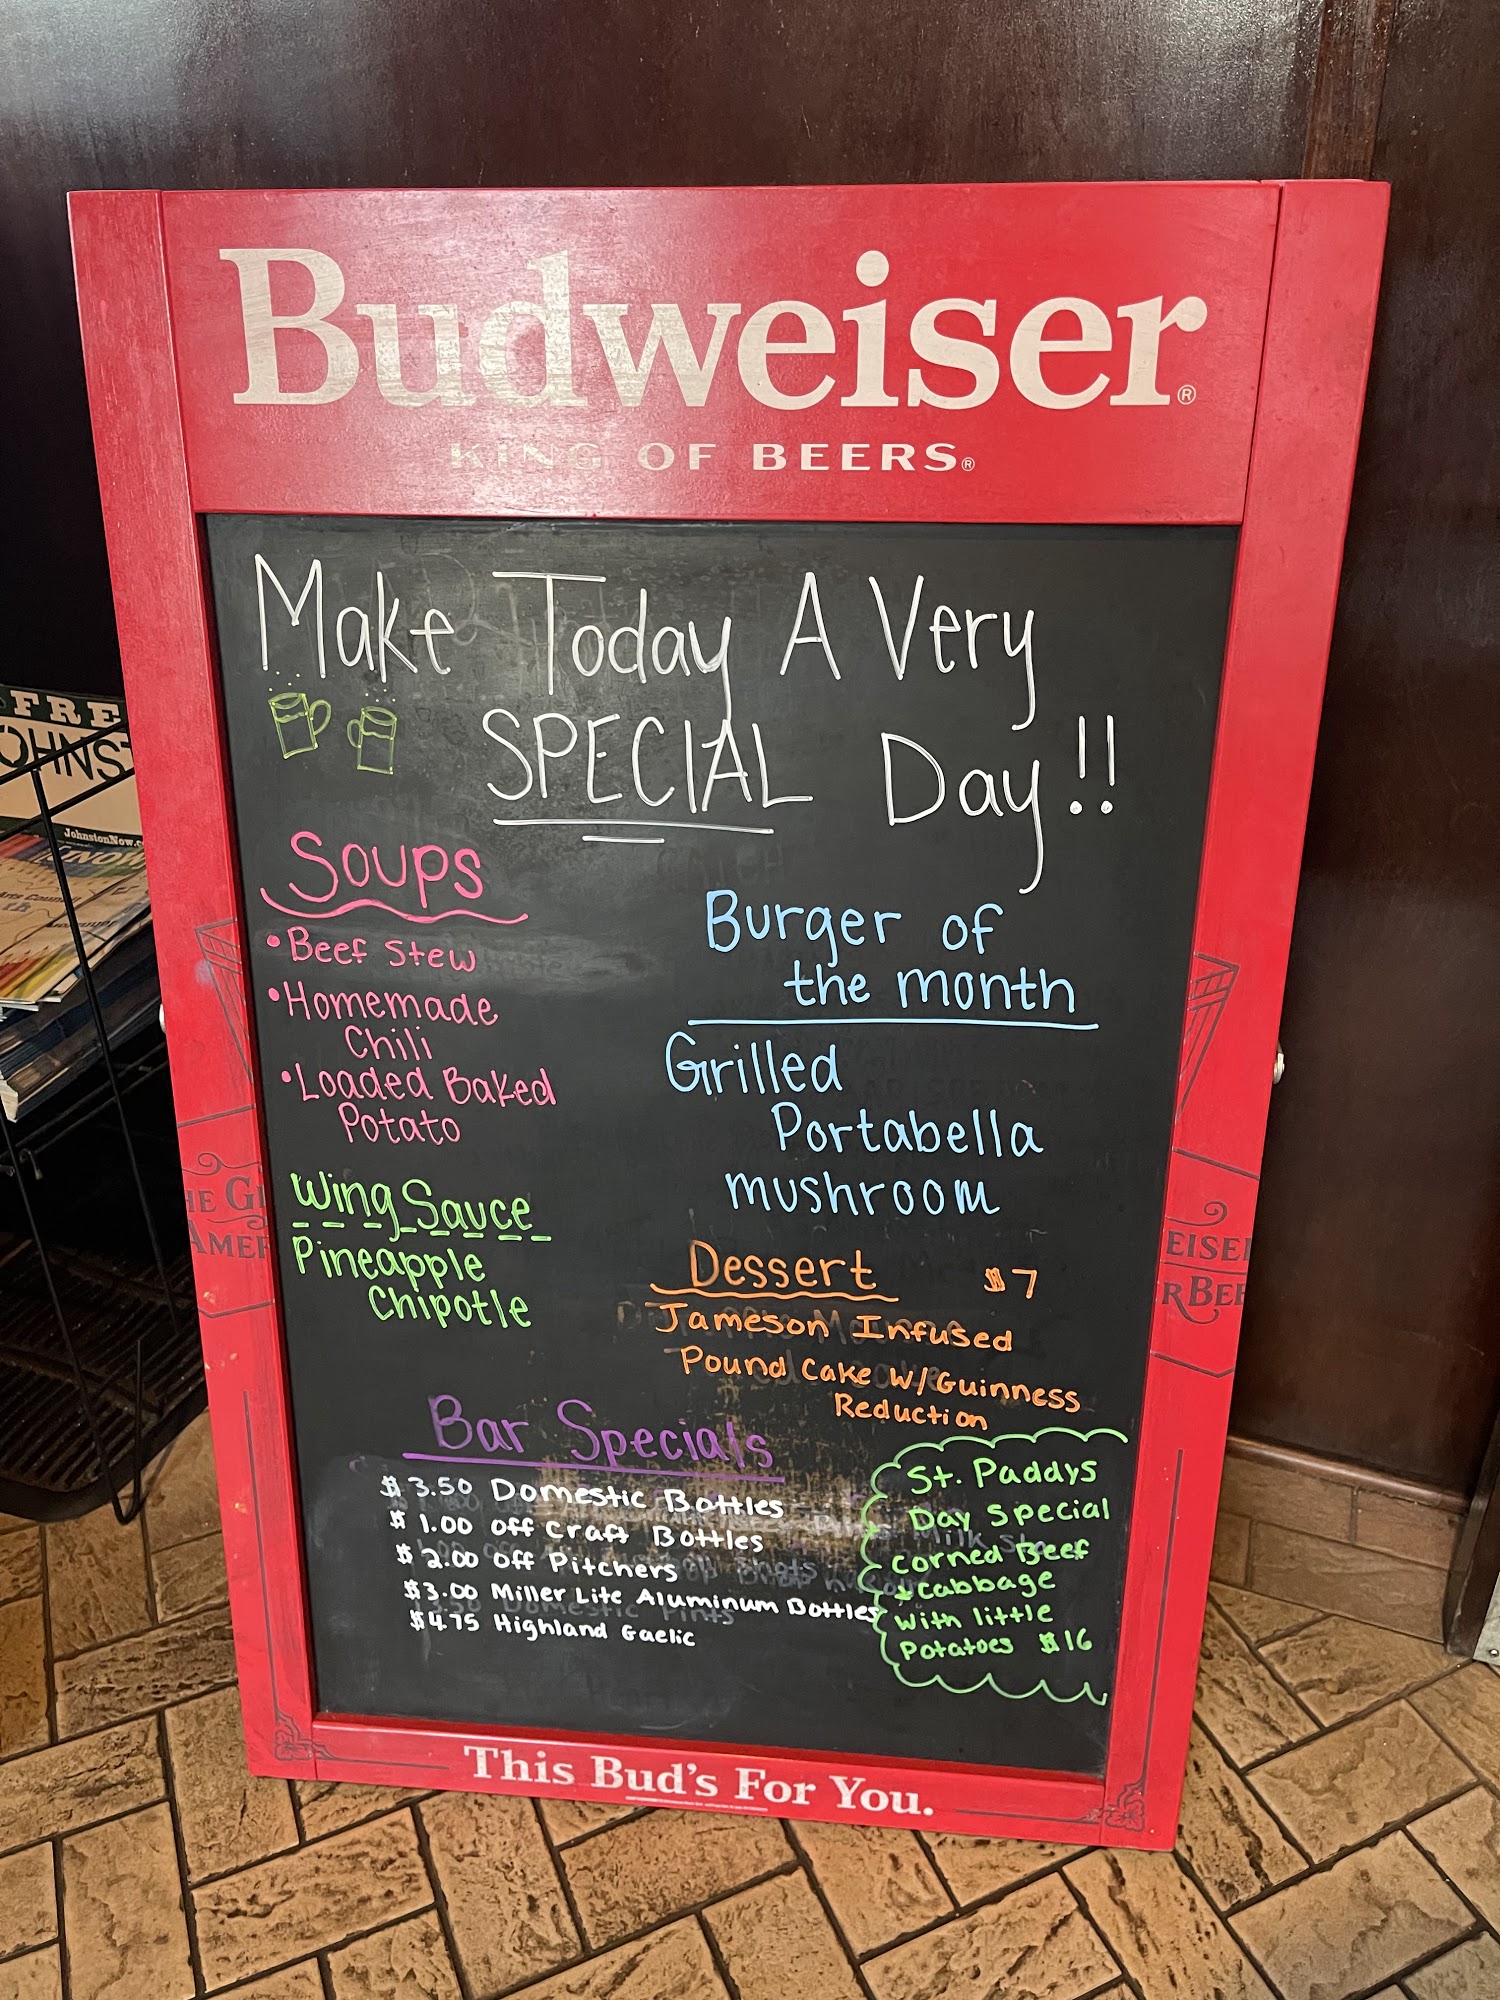 Budweiser®
KING OF BEERS®
Make Today A Very
SPECIAL Day!!
Soups
•Beef Stew
•Homemade
Chili
•Loaded Baked
Potato
Wing Sauce
Pineapple
Chipotle
Burger of
the month
Grilled
Portabella
mushroom
Dessert $7
Jameson Infused
Pound Cake W/Guinness
Reduction
Bar Specials
$3.50 Domestic Bottles
$1.00 off Craft Bottles
$2.00 off Pitchers
$3.00 Miller Lite Aluminum Bottles
$4.75 Highland Gaelic
St. Paddys
Day Special
Corned Beef
+ Cabbage
With little
Potatoes $16
This Bud's For You.
FRE
OHNS
JohnstonNow.c
HE G
AMER
EISE
RBEE